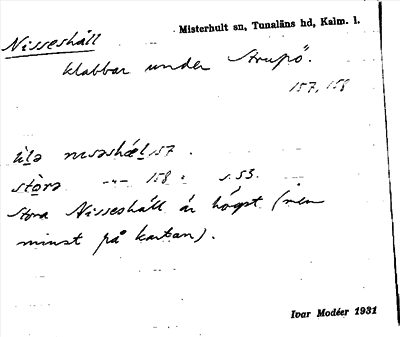 Nisseshäll
Misterhult sn, Tunaläns hd, Kalm. l.
klabbar under Strupö.
157, 158
lilə nɩsəshæl 157 .
stòrə —"— 158 . s. 53.
Stora Nisseshäll är högst (men
minst på kartan).
Ivar Modéer 1931